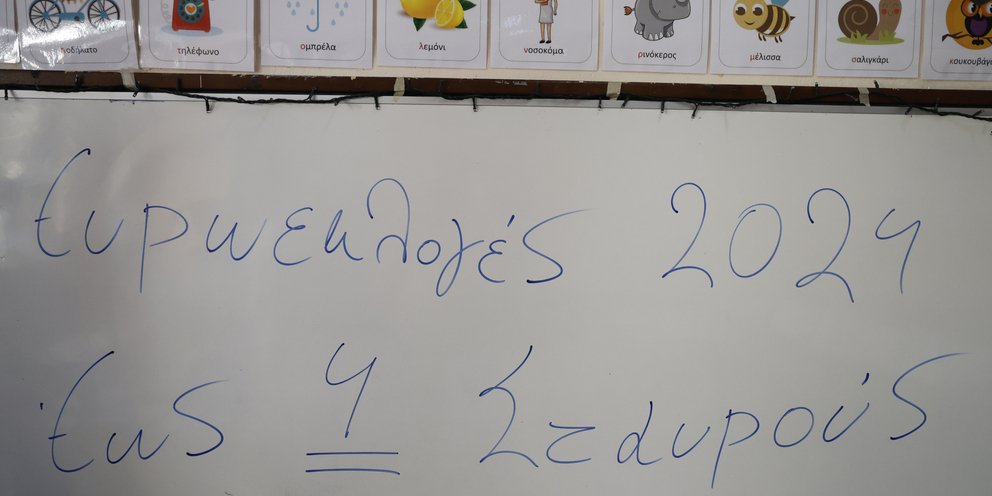 ποδήλατο τηλέφωνο ομπρέλα λεμόνι νοσοκόμα ρινόκερος μέλισσα σαλιγκάρι κουκουβάγια
Ευρωεκλογές 2024
Έως 4 Σταυρούς